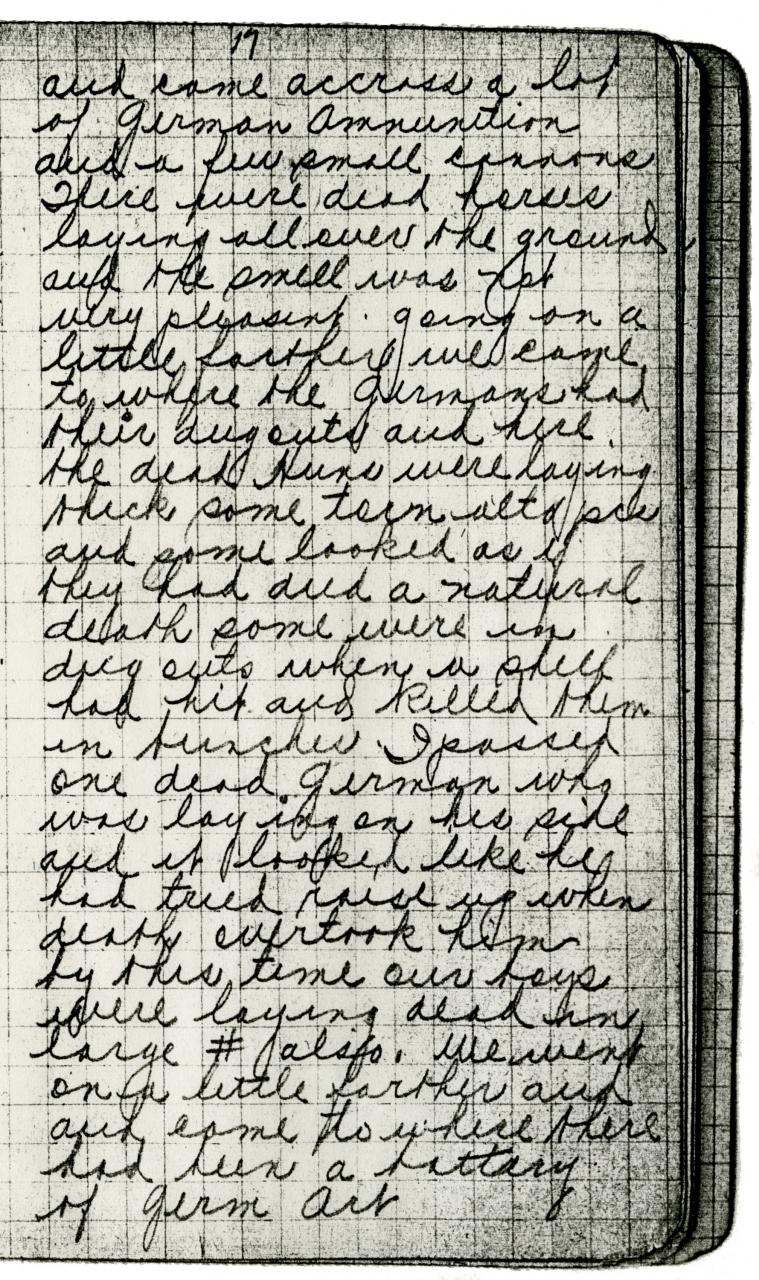 17
and come accross a lot
of German Ammunition
and a few small cannons
There were dead horses
laying all over the ground
and the smell was not
very pleasint. going on a
little farther we come
to where the Germans had
their dug outs and here
the dead Huns were laying
thick some torn all to pcs
and some looked as if
they had died a natural
death some were in
dug outs when a shell
had hit and killed them
in bunches. I passed
one dead German who
was laying on his side
and it looked like he
had tried raise up when
death overtook him
by this time our boys
were laying dead in
large # also. We went
on a little farther and
and come to where there
had been a battary
of Germ Art